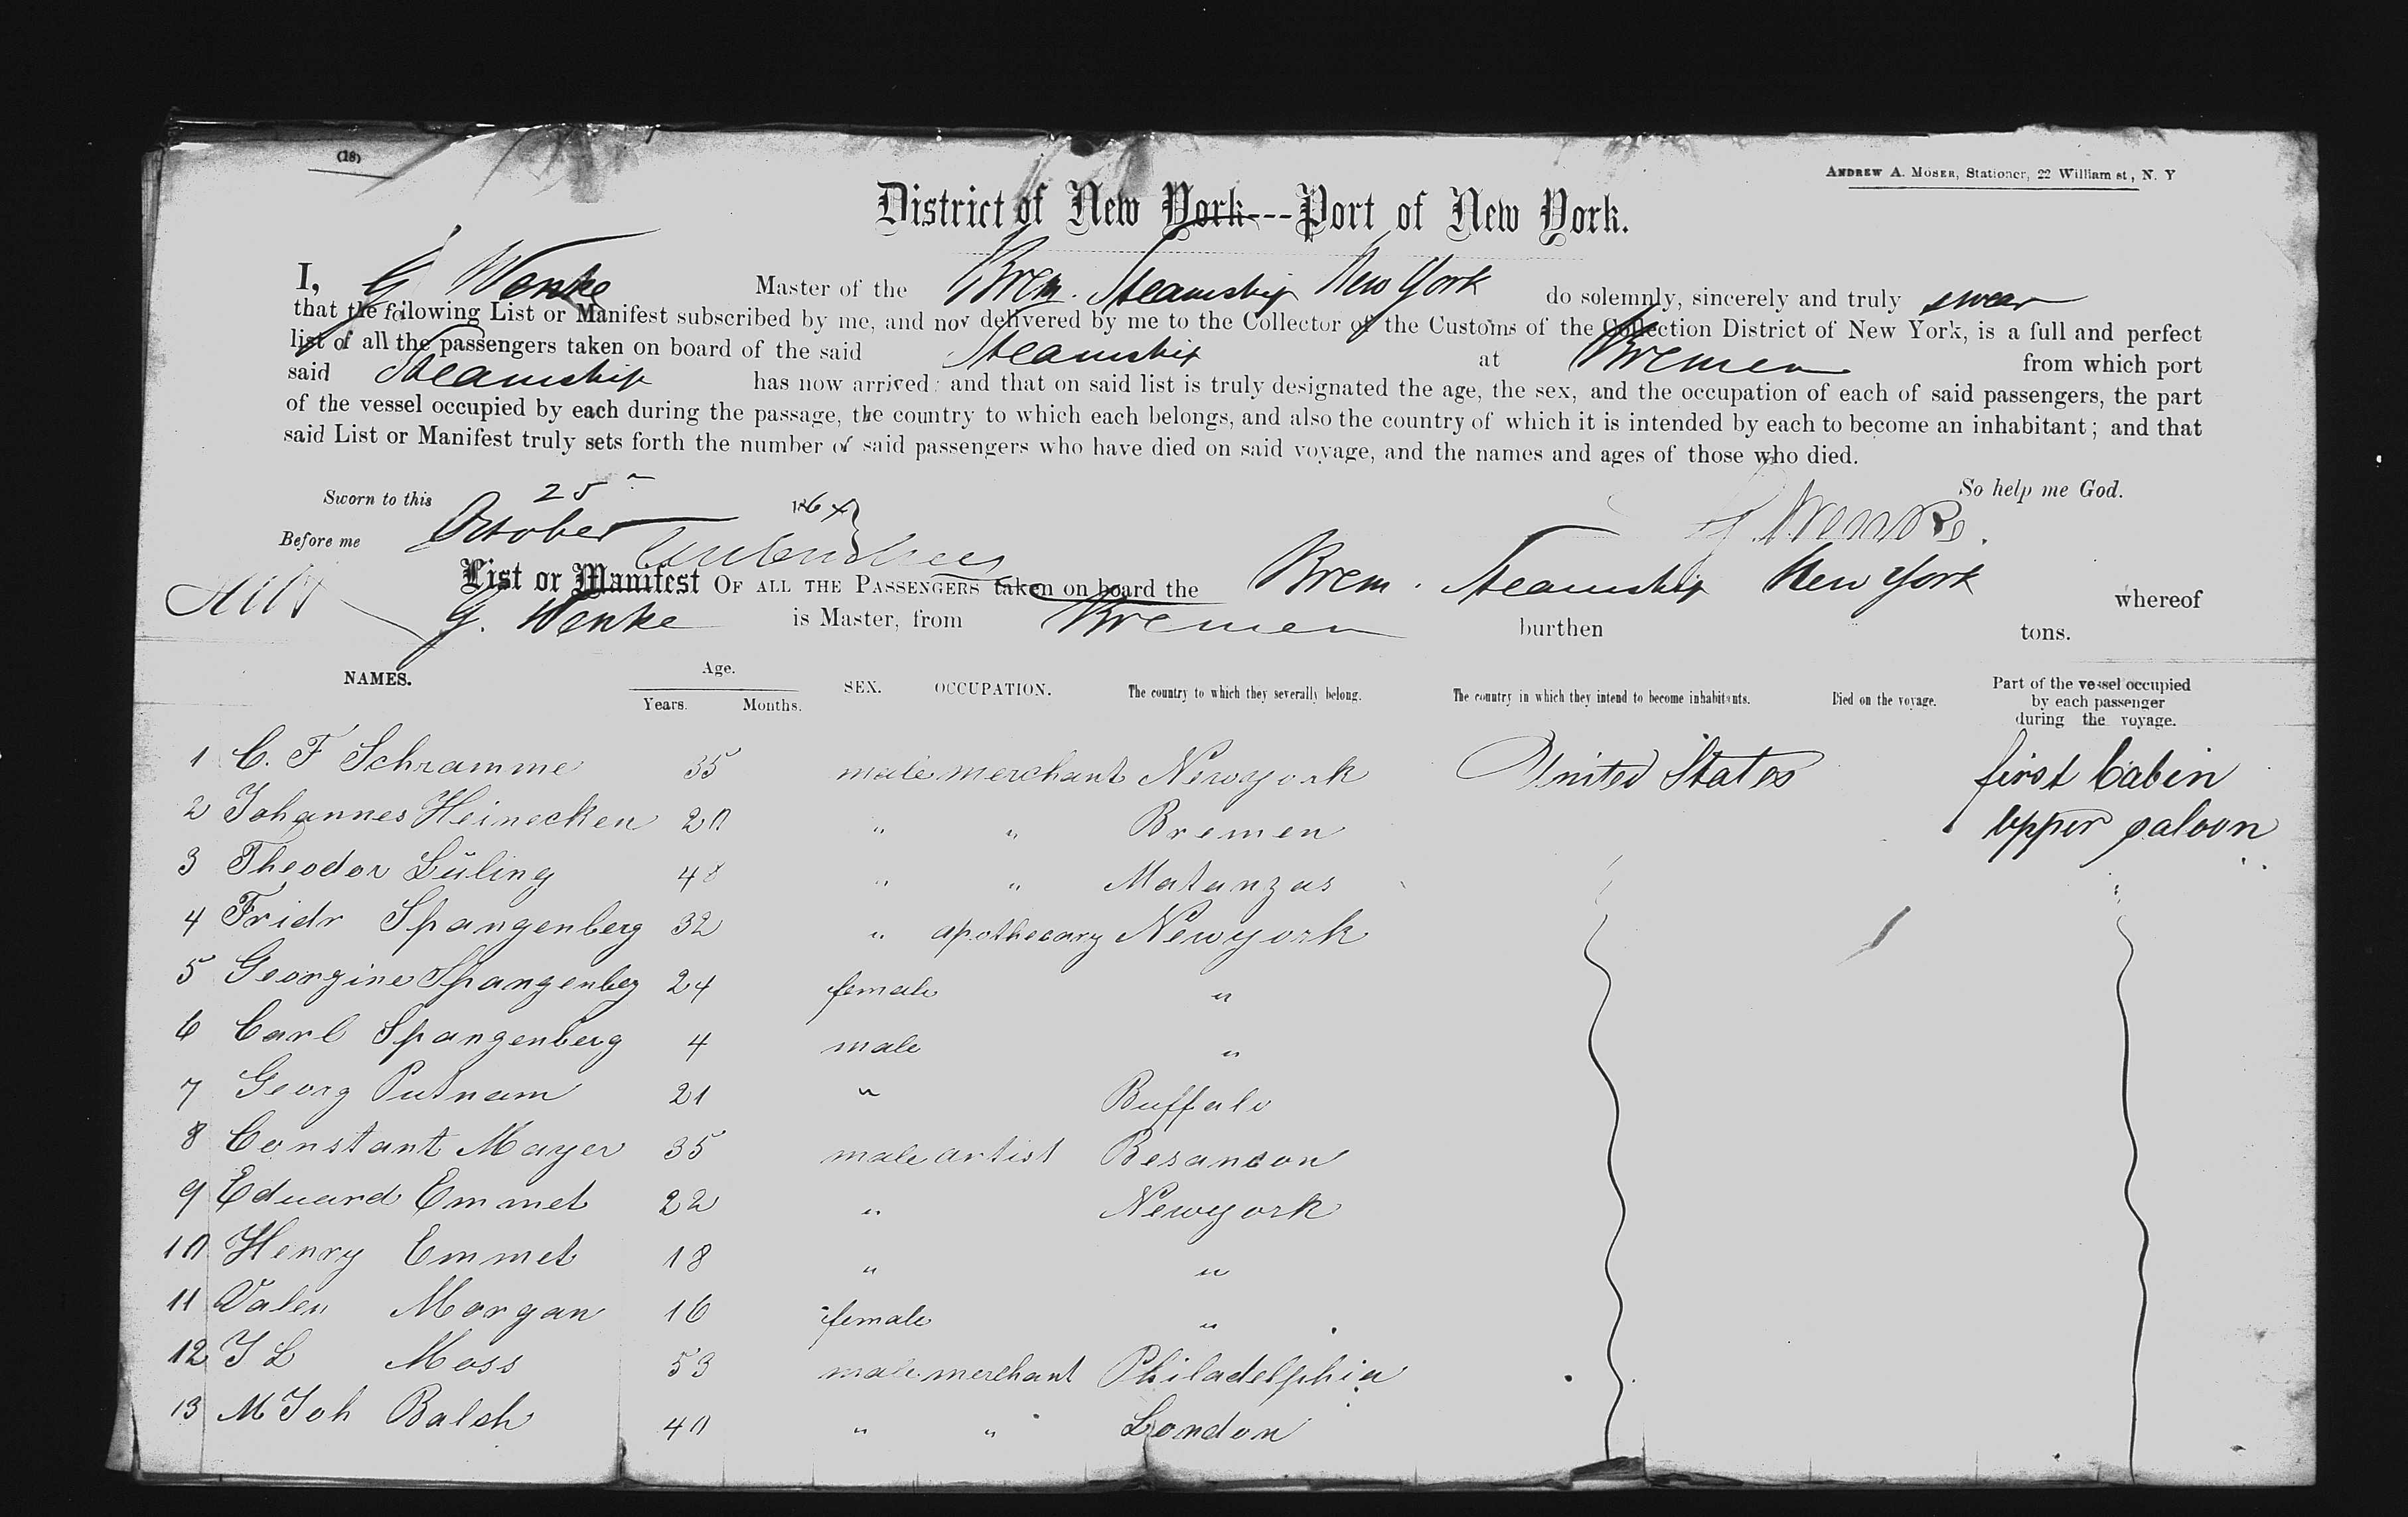 (18)
ANDREW A. MOSER, Stationer, 22 William st, N. Y
District of New York---Port of New York.
I, G Wenke Master of the Brem. Steamship New York do solemnly, sincerely and truly swear
that the following List or Manifest subscribed by me, and now delivered by me to the Collector of the Customs of the Collection District of New York, is a full and perfect
list of all the passengers taken on board of the said Steamship at Bremen from which port
said Steamship has now arrived: and that on said list is truly designated the age, the sex, and the occupation of each of said passengers, the part
of the vessel occupied by each during the passage, the country to which each belongs, and also the country of which it is intended by each to become an inhabitant; and that
said List or Manifest truly sets forth the number of said passengers who have died on said voyage, and the names and ages of those who died.
Sworn to this 25 So help me God.
October 186 G. Wenke.
Before me
List or Manifest OF ALL THE PASSENGERS taken on board the Brem. Steamship New York whereof
G. Wenke is Master, from Bremen burthen tons.
NAMES. Age. Years. Months. SEX. OCCUPATION. The country to which they severally belong. The country in which they intend to become inhabitants. Died on the voyage. Part of the vessel occupied by each passenger during the voyage.
1 C. F Schramme 35 male merchant Newyork United States first Cabin
2 Johannes Heinecken 20 " " Bremen upper saloon
3 Theodor Lüling 48 " " Matanzas "
4 Fridr Spangenberg 32 " apothecary Newyork
5 Georgine Spangenbeg 24 female "
6 Carl Spangenberg 4 male "
7 Georg Putnam 21 " Buffalo
8 Constant Mayer 35 male artist Besancon
9 Eduard Emmet 22 " Newyork
10 Henry Emmet 18 " "
11 Morgan 16 female "
12 J L Moss 53 male merchant Philadelphia
13 M Joh Balch 40 " " London